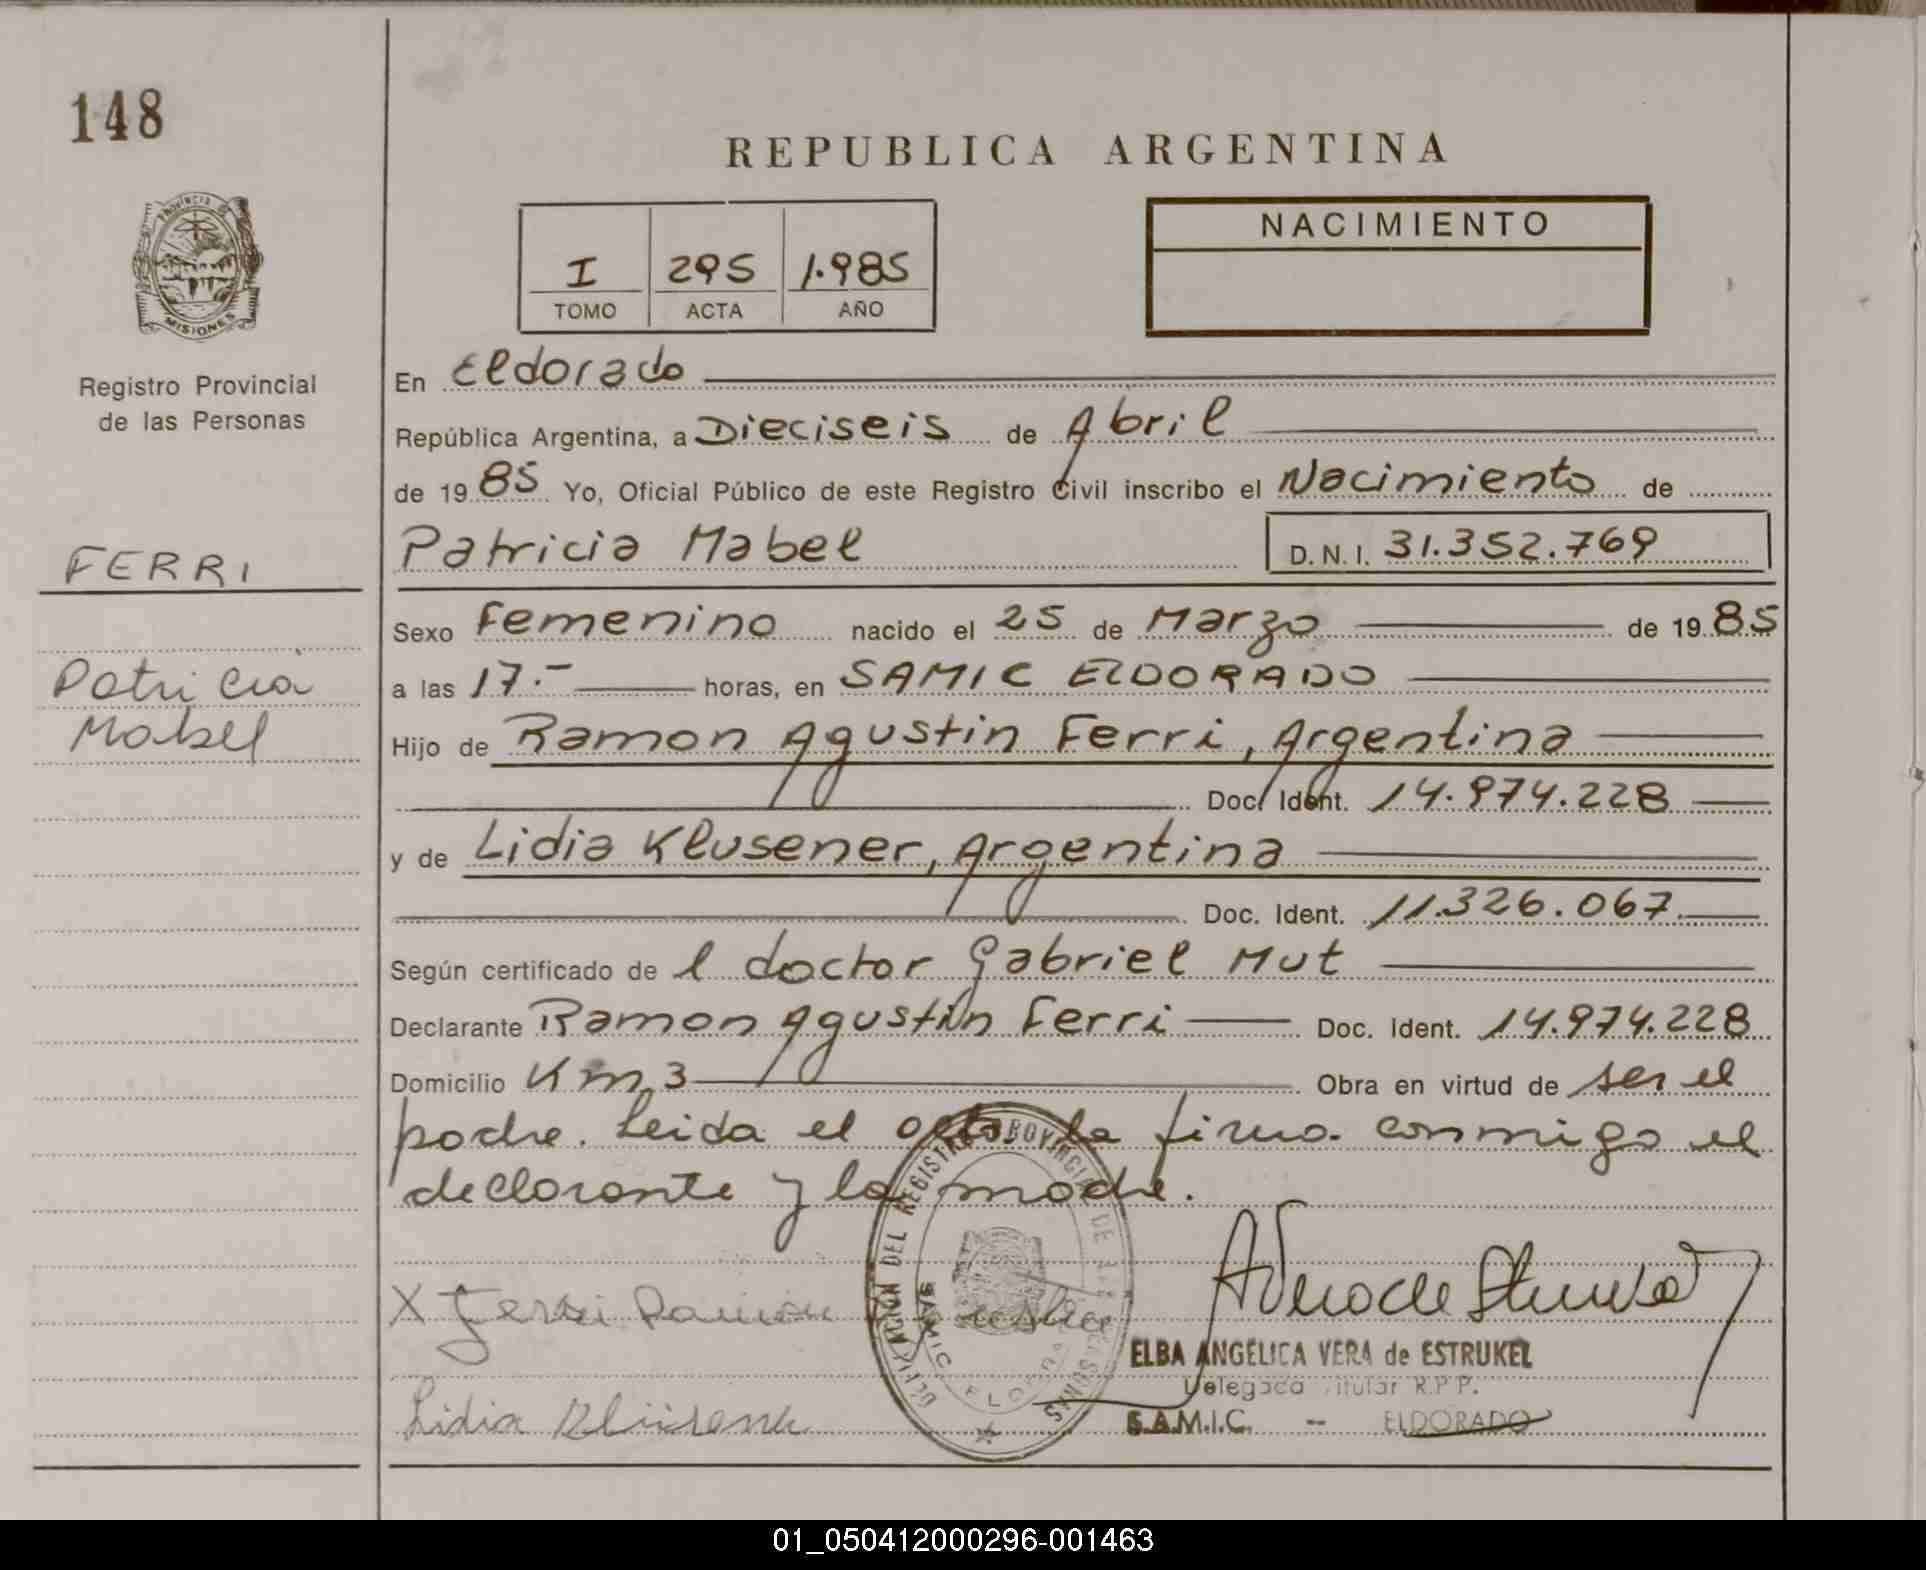 148
REPUBLICA ARGENTINA
PROVINCIA DE
MISIONES
Registro Provincial
de las Personas
I 295 1.985
TOMO ACTA AÑO
NACIMIENTO
En Eldorado
República Argentina, a Dieciseis de Abril
de 1985 Yo, Oficial Público de este Registro Civil inscribo el Nacimiento de
FERRI
Patricia Mabel D.N.I. 31.352.769
Sexo Femenino nacido el 25 de Marzo de 1985
Patricia
Mabel
a las 17.- horas, en SAMIC ELDORADO
Hijo de Ramon Agustin Ferri, Argentina
Doc. Ident. 14.974.228
y de Lidia Klusener, Argentina
Doc. Ident. 11.326.067
Según certificado de l doctor Gabriel Mut
Declarante Ramon Agustin Ferri Doc. Ident. 14.974.228
Domicilio Km 3 Obra en virtud de ser el
padre. Leida el acta la firma conmigo el
declarante y la madre.
X Ferri Ramon
DEL REGISTRO PROVINCIAL DE
SAMIC
ELBA ANGELICA VERA de ESTRUKEL
Delegada Titular R.P.P.
S.A.M.I.C. - ELDORADO
Lidia
01_050412000296-001463